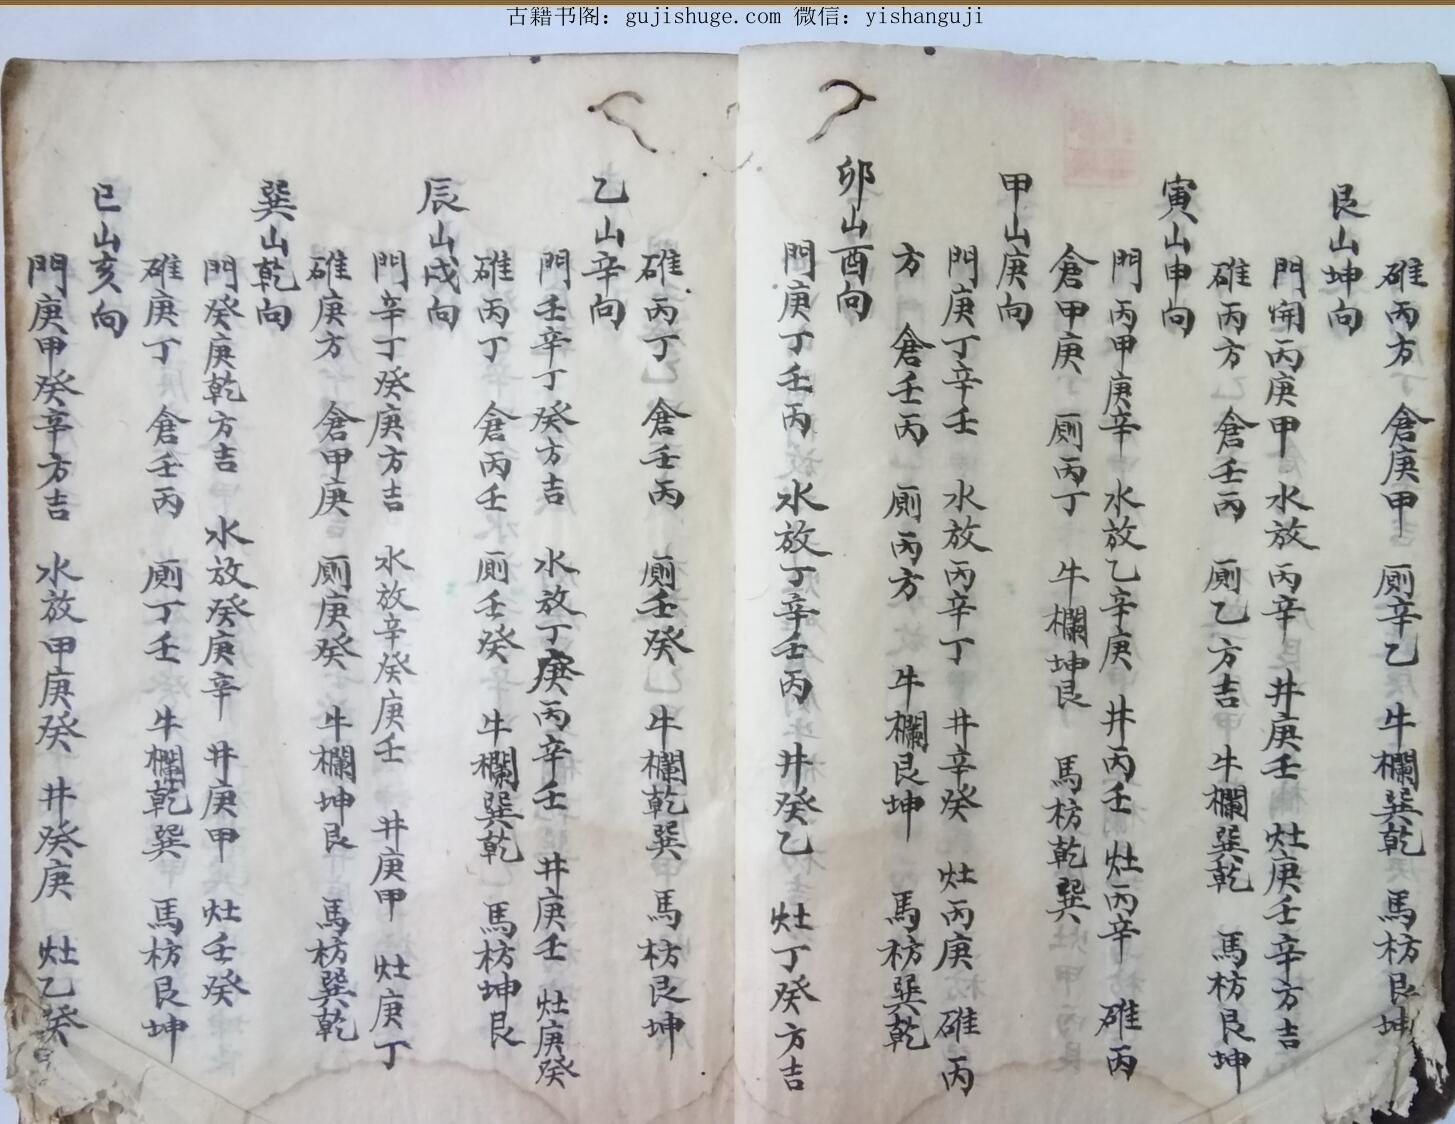 古籍书阁：gujishuge.com 微信：yishanguji
碓丙方 倉庚甲 厠辛乙 牛欄巽乾 馬枋艮坤
艮山坤向
門開丙庚甲 水放丙辛 井庚壬 灶庚壬辛方吉
碓丙方 倉壬丙 厠乙方吉 牛欄巽乾 馬枋艮坤
寅山申向
門丙甲庚辛 水放乙辛庚 井丙壬 灶丙辛 碓丙
倉甲庚 厠丙丁 牛欄坤艮 馬枋乾巽
甲山庚向
門庚丁辛壬 水放丙辛丁 井辛癸 灶丙庚 碓丙
方 倉壬丙 厠丙方 牛欄艮坤 馬枋巽乾
卯山酉向
門庚丁壬丙 水放丁辛壬丙 井癸乙 灶丁癸方吉
碓丙丁 倉壬丙 厠壬癸 牛欄乾巽 馬枋艮坤
乙山辛向
門壬辛丁癸方吉 水放丁庚丙辛壬 井庚壬 灶庚癸
碓丙丁 倉丙壬 厠壬癸 牛欄巽乾 馬枋坤艮
辰山戌向
門辛丁癸庚方吉 水放辛癸庚壬 井庚甲 灶庚丁
碓庚方 倉甲庚 厠庚癸 牛欄坤艮 馬枋巽乾
巽山乾向
門癸庚乾方吉 水放癸庚辛 井庚甲 灶壬癸
碓庚丁 倉壬丙 厠丁壬 牛欄乾巽 馬枋艮坤
巳山亥向
門庚甲癸辛方吉 水放甲庚癸 井癸庚 灶乙癸